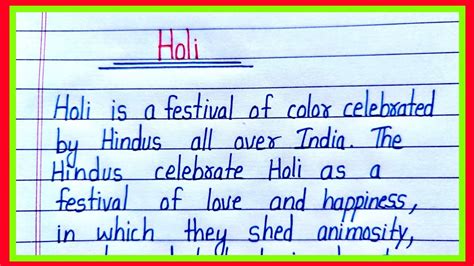 Holi
Holi is a festival of color celebrated
by Hindus all over India. The
Hindus celebrate Holi as a
festival of love and happiness,
in which they shed animosity,